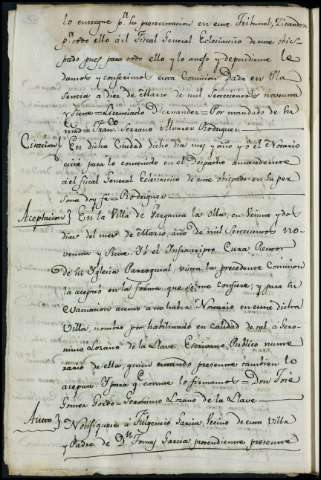 lo entregue pª. su presentacion en este Tribunal, Citandose
pª. todo ello al Fiscal General Eclesiastico de este obis-
pado pues para todo ello y lo anejo y dependiente le
damos y conferimos esta Comision Dada en
à diez de Marzo de mil Setecientos noventa
y siete = Licenciado Hernandez = Por mandado de
= Franco. Serrano Alvarez Rodriguez
Citacion} En dicha Ciudad dicho dia mes y año yo el Notario
cité para lo contenido en el Despacho Antecedente
al Fiscal General Eclesiastico de este obispado en la per-
sona doy fé = Rodriguez
Aceptacion} En la Villa de la Olla, en Veinte y dos
dias del mes de Marzo, año de mil Setecientos no-
venta y Siete. Yo el Infraescripto Cura Rector
de la Yglesia Parroquial vista la precedente Comision
la acepto en la forma que se me confiere, y para la
evacuacion atento à no haber Notario en esta dicha
Villa, nombro por habilitado en calidad de tal a Gero-
nimo Lozano de la Llave, Escrivano Publico nume-
rario de ella, quien estando presente tambien lo
acepta Y para que conste lo firmamos = Don José
Gomez = Geronimo Lozano de la Llave
Auto} Notifiquese à Fulgencio Garcia, Vecino de esta Villa
y Padre de Dn. Tomas Garcia pretendiente presente